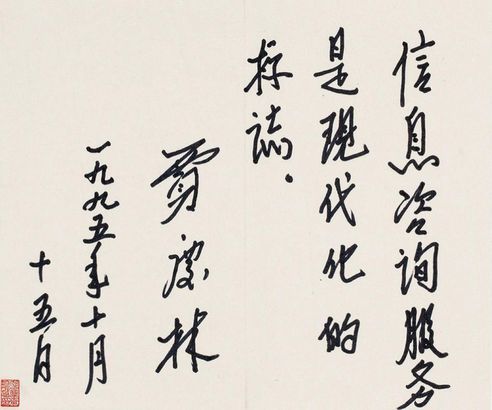 信息咨询服务
是现代化的
标志。
贾庆林
一九九五年十月
十五日